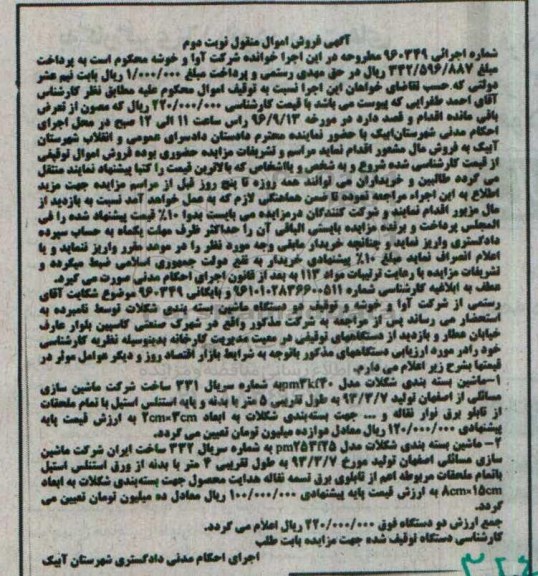 آگهی فروش اموال منقول نوبت دوم
شماره اجرائی ۹۶۰۳۴۹ مطروحه در این اجرا خوانده شرکت آوا و خوشه محکوم است به پرداخت
مبلغ ۳۳۲/۵۹۶/۸۸۷ ریال در حق مهدی رستمی و پرداخت مبلغ ۱/۰۰۰/۰۰۰ ریال بابت نیم عشر
دولتی که حسب تقاضای خواهان این اجرا نسبت به توقیف اموال محکوم علیه مطابق نظر کارشناس
آقای احمد طفرایی که پیوست می باشد با قیمت کارشناسی ۲۲۰/۰۰۰/۰۰۰ ریال که مصون از تعرض
باقی مانده اقدام و قصد دارد در مورخه ۹۶/۹/۱۳ راس ساعت ۱۱ الی ۱۲ صبح در محل اجرای
احکام مدنی شهرستان آبیک با حضور نماینده محترم دادستان دادسرای عمومی و انقلاب شهرستان
آبیک به فروش مال مشهور اقدام نماید مراسم و تشریفات مزایده حضوری بوده فروش اموال توقیفی
از قیمت کارشناسی شده شروع و به شخص و یااشخاص که بالاترین قیمت را کتبا پیشنهاد نمایند منتقل
می گردد طالبین و خریداران می توانند همه روزه تا پنج روز قبل از مراسم مزایده جهت مزید
اطلاع به این اجراء مراجعه نموده تا ضمن هماهنگی لازم که به عمل خواهد آمد نسبت به بازدید از
مال مزبور اقدام نمایند و شرکت کنندگان درمزایده می بایست بدوا ۱۰٪ قیمت پیشنهاد شده را فی
المجلس پرداخت و برنده مزایده بایستی الباقی آن را حداکثر ظرف مهلت یکماه به حساب سپرده
دادگستری واریز نماید و چنانچه خریدار مابقی وجه مورد نظر را در موعد مقرر واریز ننماید و یا
اعلام انصراف نماید مبلغ ۱۰٪ پیشنهادی خریدار به نفع دولت جمهوری اسلامی ضبط میگردد و
تشریفات مزایده با رعایت ترتیبات مواد ۱۱۳ به بعد از قانون اجرای احکام مدنی صورت می گیرد.
عطف به ابلاغیه کارشناسی شماره ۹۶۱۰۱۰۲۸۳۶۶۰۰۵۱۱ و بایگانی ۹۶۰۳۴۹ موضوع شکایت آقای
رستمی از شرکت آوا و خوشه و توقیف دو دستگاه ماشین بسته بندی شکلات توسط نامبرده به
استحضار می رساند پس از مراجعه به شرکت مذکور واقع در شهرک صنعتی کاسپین بلوار عارف
خیابان عطار و بازدید از دستگاههای توقیفی در معیت مدیریت کارخانه بدینوسیله نظریه کارشناسی
خود رادر مورد ارزیابی دستگاههای مذکور باتوجه به شرایط بازار اقتصاد روز و دیگر عوامل موثر در
قیمتها بشرح زیر اعلام می دارم.
۱-ماشین بسته بندی شکلات مدل به شماره سریال ۳۳۱ ساخت شرکت ماشین سازی
مسائلی از اصفهان تولید ۹۳/۳/۷ به طول تقریبی ۵ متر با بدنه و پایه استنلس استیل با تمام ملحقات
از تابلو برق نوار نقاله و ... جهت بسته‌بندی شکلات به ابعاد ۲cm=۳cm به ارزش قیمت پایه
پیشنهادی ۱۲۰/۰۰۰/۰۰۰ ریال معادل دوازده میلیون تومان تعیین می گردد.
۲- ماشین بسته بندی شکلات مدل به شماره سریال ۳۳۲ ساخت ایران شرکت ماشین
سازی مسائلی اصفهان تولید مورخ ۹۳/۳/۷ به طول تقریبی ۴ متر با بدنه از ورق استنلس استیل
باتمام ملحقات مربوطه اعم از تابلوی برق تسمه نقاله هدایت محصول جهت بسته‌بندی شکلات به ابعاد
۸cm=۱۵cm به ارزش قیمت پایه پیشنهادی ۱۰۰/۰۰۰/۰۰۰ ریال معادل ده میلیون تومان تعیین می
گردد.
جمع ارزش دو دستگاه فوق ۲۲۰/۰۰۰/۰۰۰ ریال اعلام می گردد.
کارشناسی دستگاه توقیف شده جهت مزایده بابت طلب
اجرای احکام مدنی دادگستری شهرستان آبیک